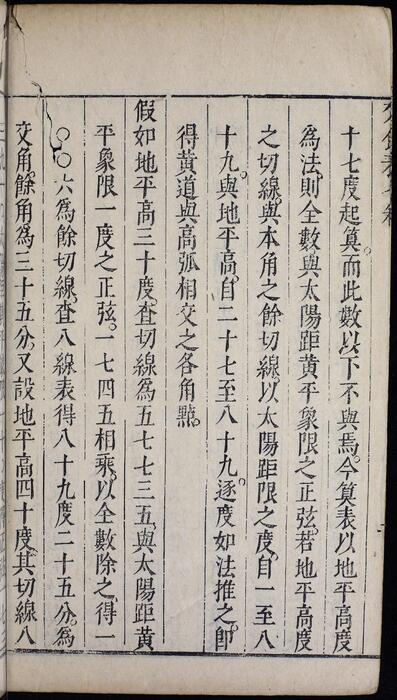 十七度起筭而此數以下不與焉。今筭表以地平高度
為法。則全數與太陽距黃平象限之正弦。若地平高度
之切線。與本角之餘切線。以太陽距限之度。自一至八
十九。與地平高。自二十七至八十九。逐度如法推之。即
得黃道與高弧相交之各角㸃。
假如地平高三十度。查切線為五七七三五。與太陽距黃
平象限一度之正弦。一七四五相乘。以全數除之。得一
〇〇六為餘切線。查八線表得八十九度二十五分。為
交角。餘角為三十五分。又設地平高四十度。其切線八